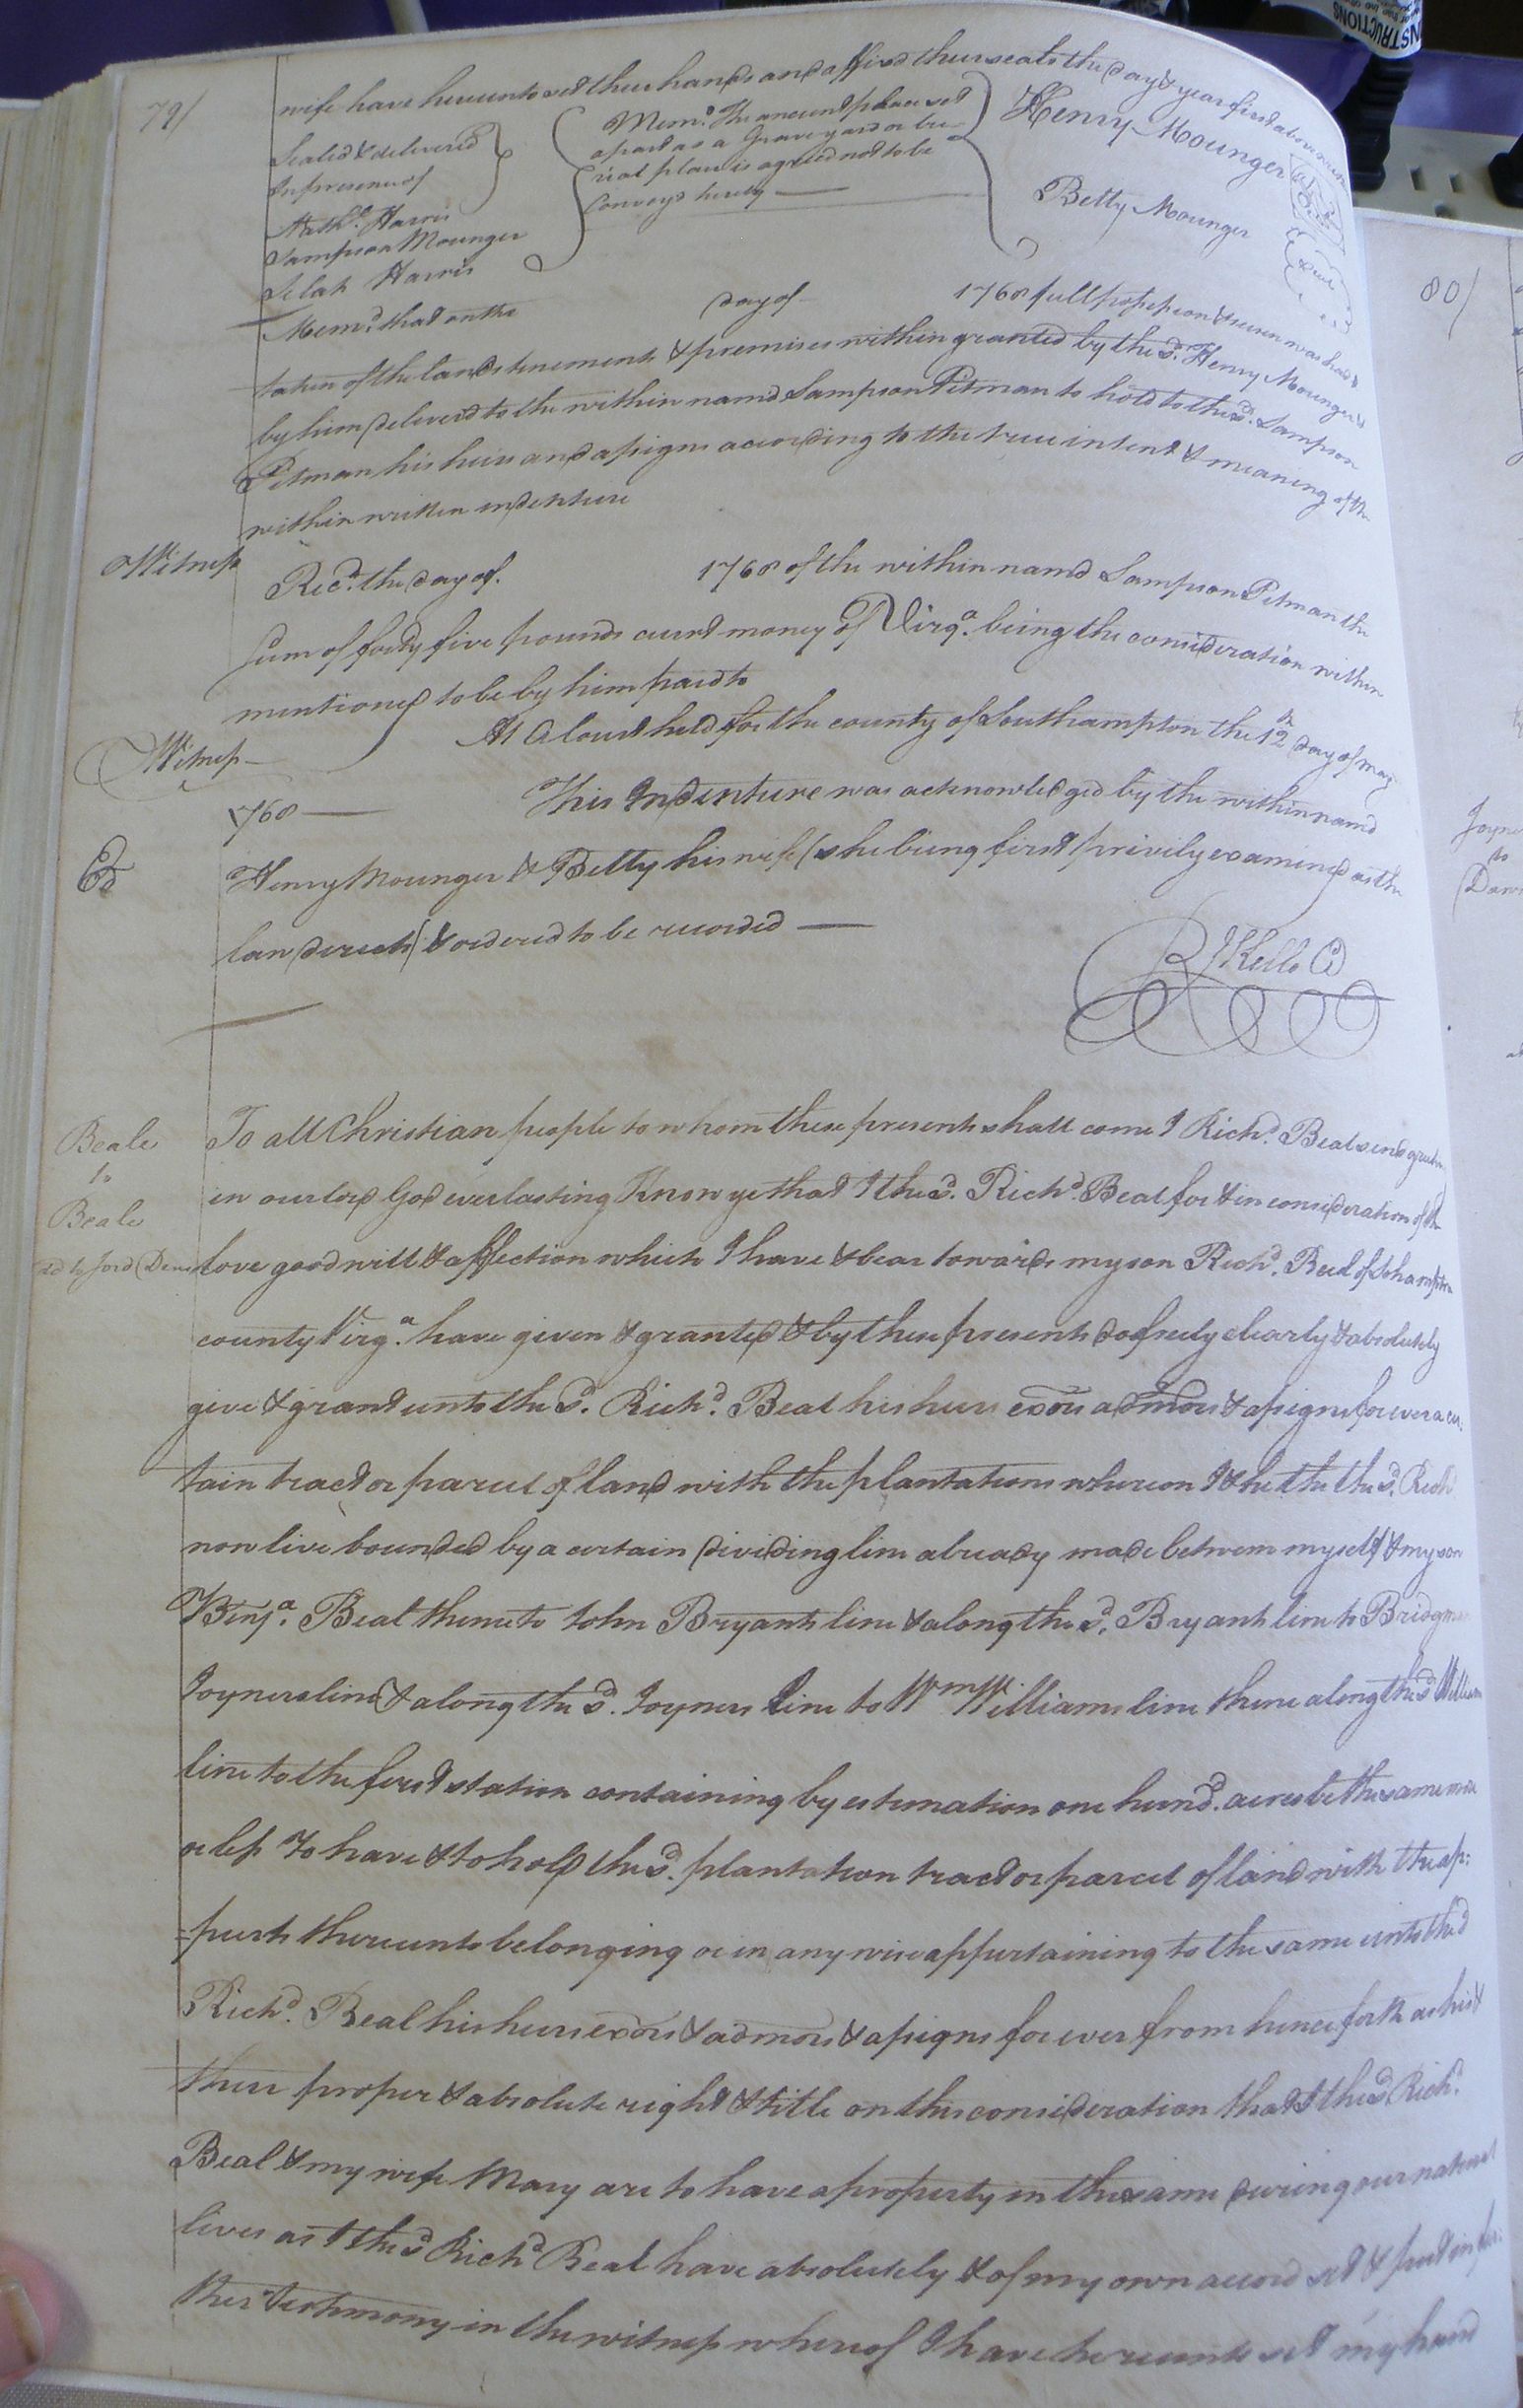 79/
wife have hereunto set their hands and affixd their seals the day & year first above written
Sealed & delivered
In presence of
Nathl. Harris
Sampson Mounger
Selah Harris
Memd. The ancient place set
apart as a Graveyard or bu
rial place is agreed not to be
Conveyd hereby
Henry Mounger
Betty Mounger
Seal
Memd. that on the day of 1768 full possession & seisen was had &
taken of the lands tenements & premises within granted by the sd. Henry Mounger &
by him deliverd to the within namd Sampson Pitman to hold to the sd. Sampson
Pitman his heirs and assigns according to the true intent & meaning of the
within written indenture
Witness
Recd. the day of. 1768 of the within namd Sampson Pitman the
Sum of forty five pounds curt money of Virga. being the consideration within
mentioned to be by him paid to
Witness
At a Court held for the county of Southampton the 12th day of may
1768 — This Indenture was acknowledged by the within namd
Henry Mounger & Betty his wife (she being first privily examined as the
law directs) & ordered to be recorded —
R Kello C
Beale
to
Beale
To all Christian people to whom these presents shall come I Richd. Beal send greeting
in our lord God everlasting Know ye that I the sd. Richd. Beal for & in consideration of the
love good will & affection which I have & bear towards my son Richd. Beal of Sohampton
county Virga. have given & granted & by these presents do freely clearly & absolutely
give & grant unto the sd. Richd. Beal his heirs exors admors & assigns for ever a cer:
tain tract or parcel of land with the plantations whereon I & the sd. Richd
now live bounded by a certain dividing line already made between myself & my son
Benja. Beal thence to John Bryants line & along the sd. Bryants line to Bridgman
Joyners line & along the sd. Joyners line to Wm Williams line thence along the sd Williams
line to the first station containing by estimation one hund. acres be the same more
or less To have & to hold the sd. plantation tract or parcel of land with the ap:
=purts thereunto belonging or in any wise appurtaining to the same unto the sd
Richd. Beal his heirs exors & admors & assigns for ever from hence forth as his &
their proper & absolute right & title on this consideration that I the sd Richd.
Beal & my wife Mary are to have a property in the same during our natural
lives as I the sd Richd Beal have absolutely & of my own accord set & put in fur:
ther testimony in the witness whereof I have hereunto set my hand
80/
Joyne
to
INSTRUCTIONS